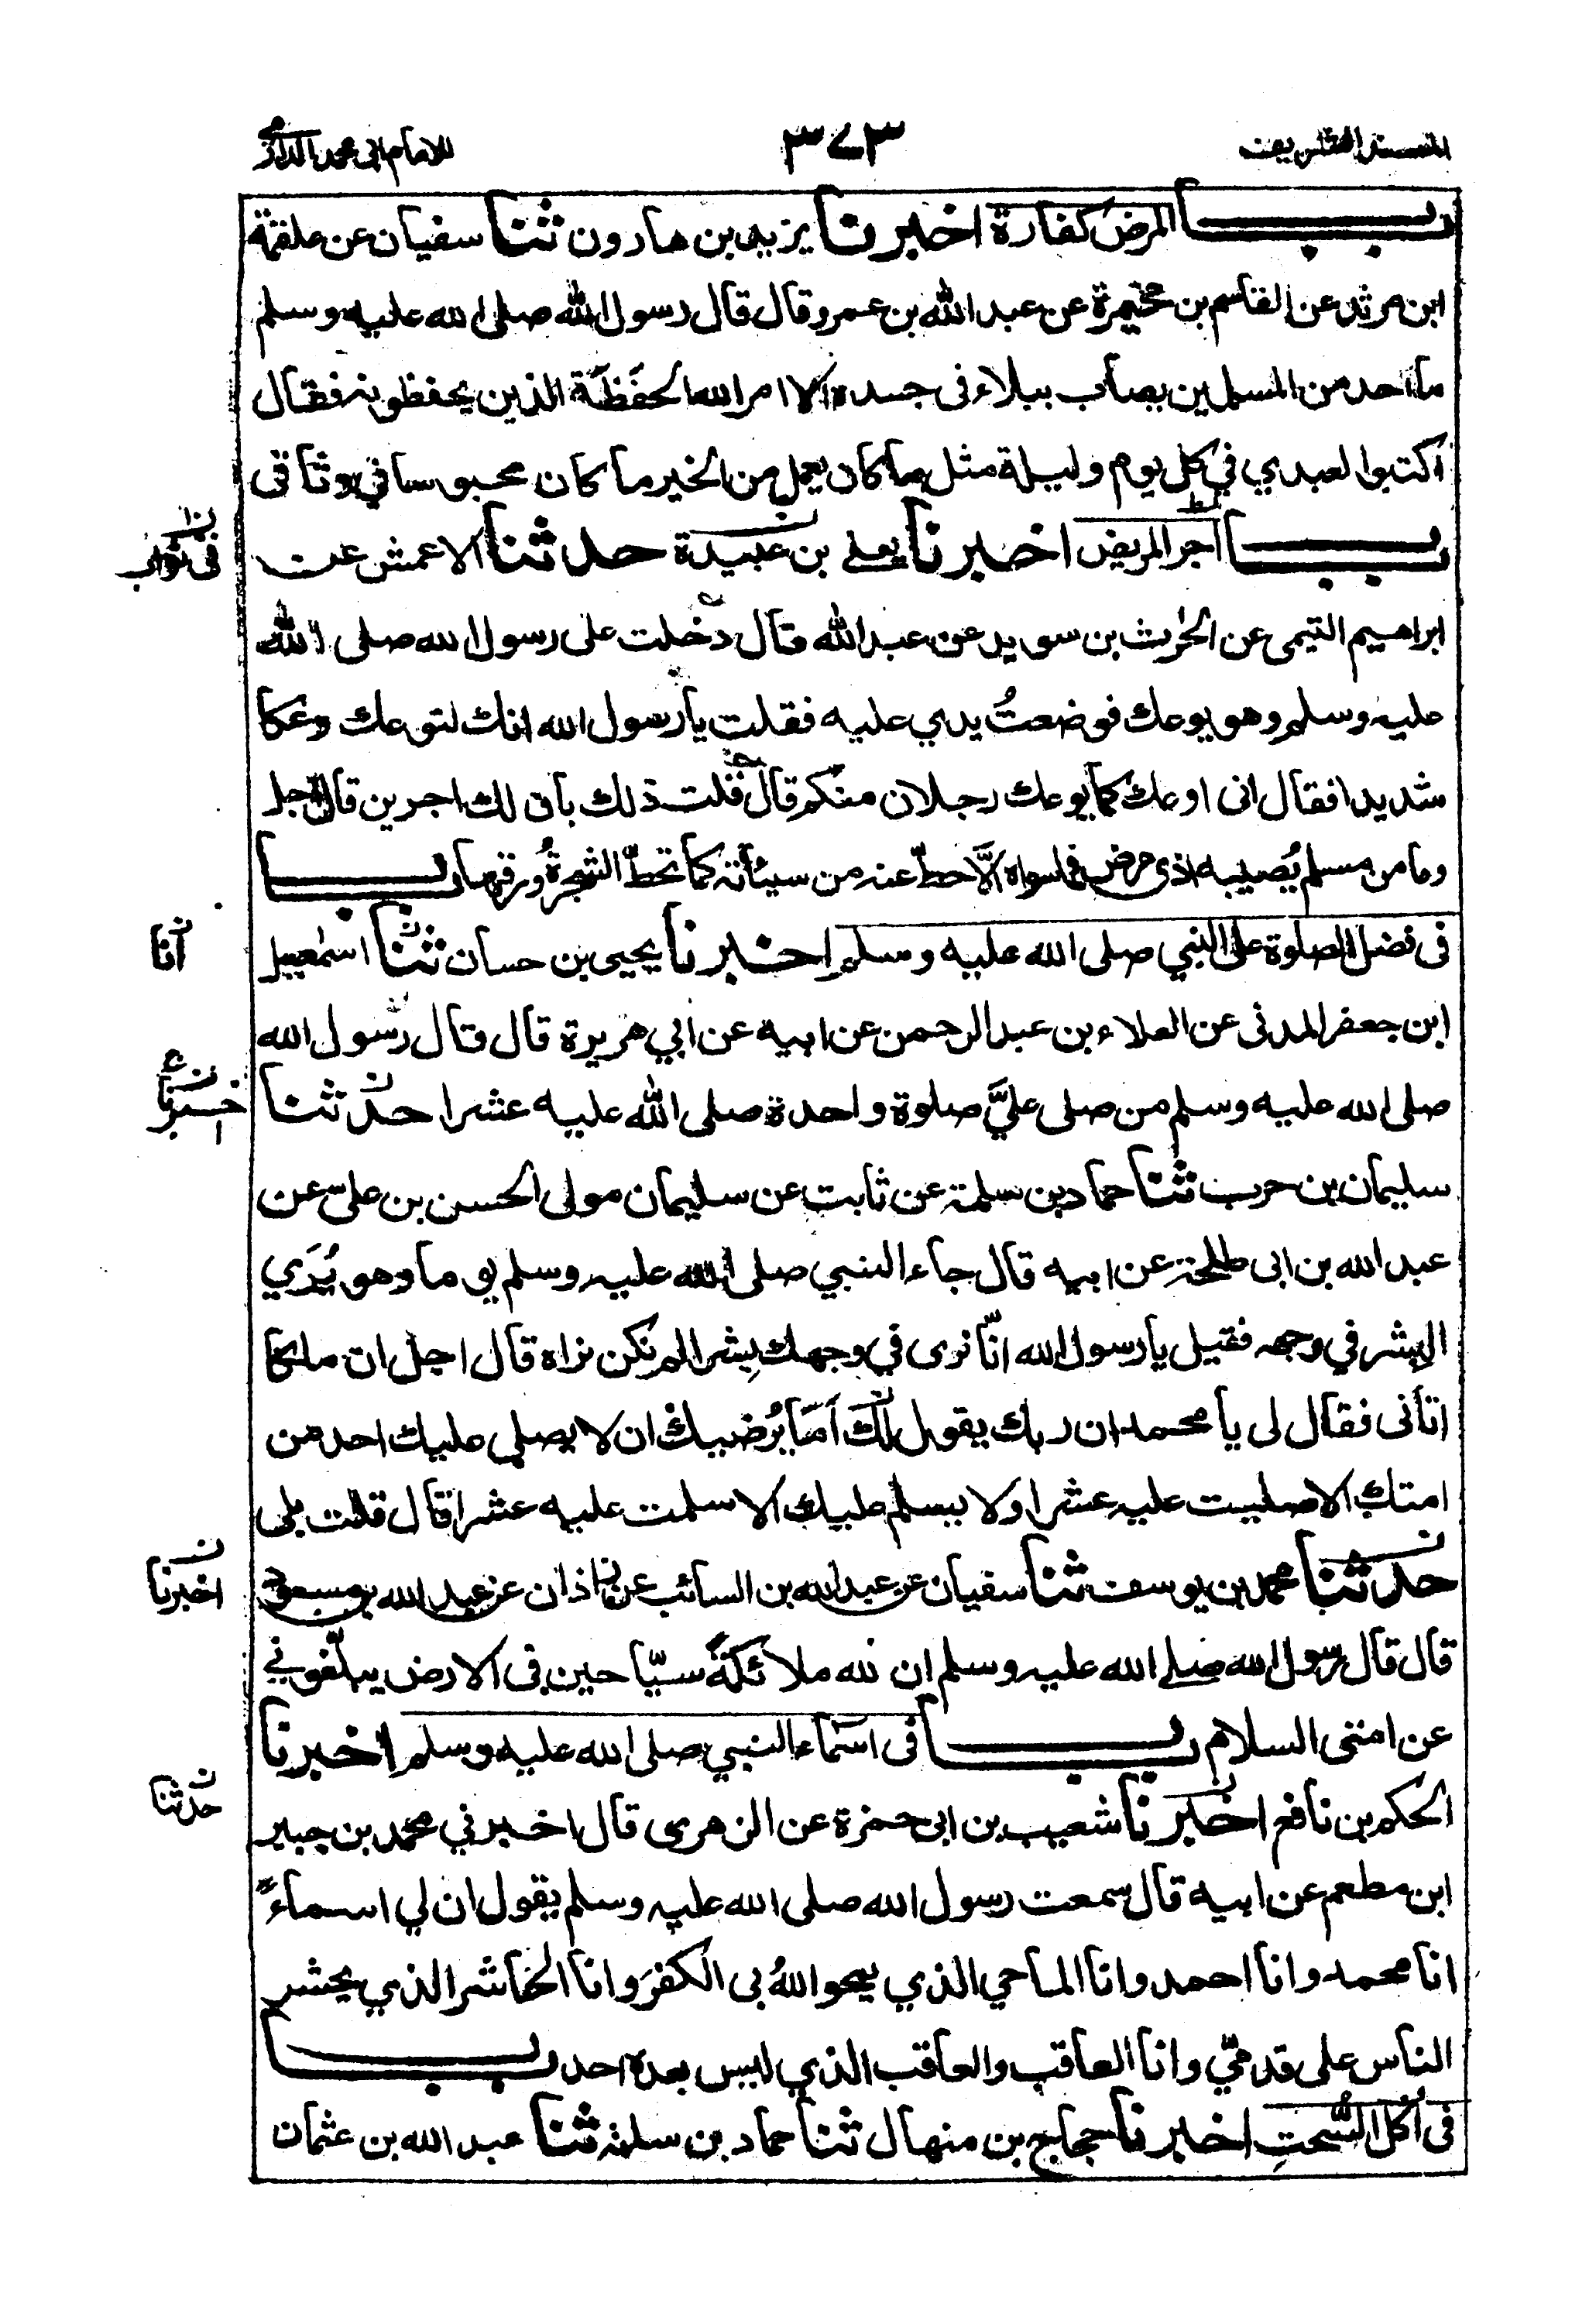 المسند الشريف ٣٧٣ للامام ابى محمد الدارمى
باب المرض كفارة اخبرنا يزيد بن هارون ثنا سفيان عن علقمة
ابن مرثد عن القاسم بن مخيمرة عن عبد الله بن عمرو قال قال رسول الله صلى الله عليه وسلم
ما احد من المسلمين يصاب ببلاء فى جسده الا امر الله الحَفَظَة الذين يحفظونه فقال
اكتبوا لعبدي في كل يوم وليلة مثل ما كان يعمل من الخير ما كان محبوسا في وثاقى
باب اجر المريض اخبرنا يعلى بن عبيدة حدثنا الاعمش عن
فى ثواب
ابراهيم التيمى عن الحٰرث بن سويد عن عبد الله قال دخلت على رسول الله صلى الله
عليه وسلم وهو يوعك فوضعتُ يدي عليه فقلت يا رسول الله انك لتوعك وعكا
شديدا فقال انى اوعك كما يوعك رجلان منكم قال قلت ذلك بان لك اجرين قال اجل
وما من مسلم يُصيبه اذى مرض فما سواه الَّا حطّ عنه من سيئاته كما تحطّ الشجرةُ ورقها باب
فى فضل الصلوة على النبي صلى الله عليه وسلم اخبرنا يحيى بن حسان ثنا اسمٰعيل
انا
ابن جعفر المدنى عن العلاء بن عبد الرحمن عن ابيه عن ابي هريرة قال قال رسول الله
صلى الله عليه وسلم من صلى عليَّ صلوة واحدة صلى الله عليه عشرا حدثنا
اخبرنا
سليمان بن حرب ثنا حماد بن سلمة عن ثابت عن سليمان مولى الحسن بن علىّ عن
عبد الله بن ابى طلحة عن ابيه قال جاء النبي صلى الله عليه وسلم يوما وهو يُرَي
البِشر في وجهه فقيل يا رسول الله انّا نرى في وجهك بِشرا لم نكن نراه قال اجل ان ملكا
اتانى فقال لى يا محمد ان ربك يقول لك اَمَا يُرضيك ان لا يصلى عليك احد من
امتك الا صليت عليه عشرا ولا يسلم عليك الا سلمت عليه عشرا قال قلت بلى
حدثنا محمد بن يوسف ثنا سفيان عن عبد الله بن السائب عن زاذان عن عبد الله بن مسعود
اخبرنا
قال قال رسول الله صلى الله عليه وسلم ان لله ملائكةً سيّاحين فى الارض يبلّغوني
عن امتى السلام باب فى اسماء النبي صلى الله عليه وسلم اخبرنا
الحكم بن نافع اخبرنا شعيب بن ابى حمزة عن الزهرى قال اخبرني محمد بن جبير
حدثنا
ابن مطعم عن ابيه قال سمعت رسول الله صلى الله عليه وسلم يقول ان لي اسماءً
انا محمد وانا احمد وانا الماحي الذي يمحو اللهُ بى الكفرَ وانا الحاشر الذي يحشر
الناس على قدمىّ وانا العاقب والعاقب الذي ليس بعده احد باب
فى اكل السُّحتِ اخبرنا حجاج بن منهال ثنا حماد بن سلمة ثنا عبد الله بن عثمان